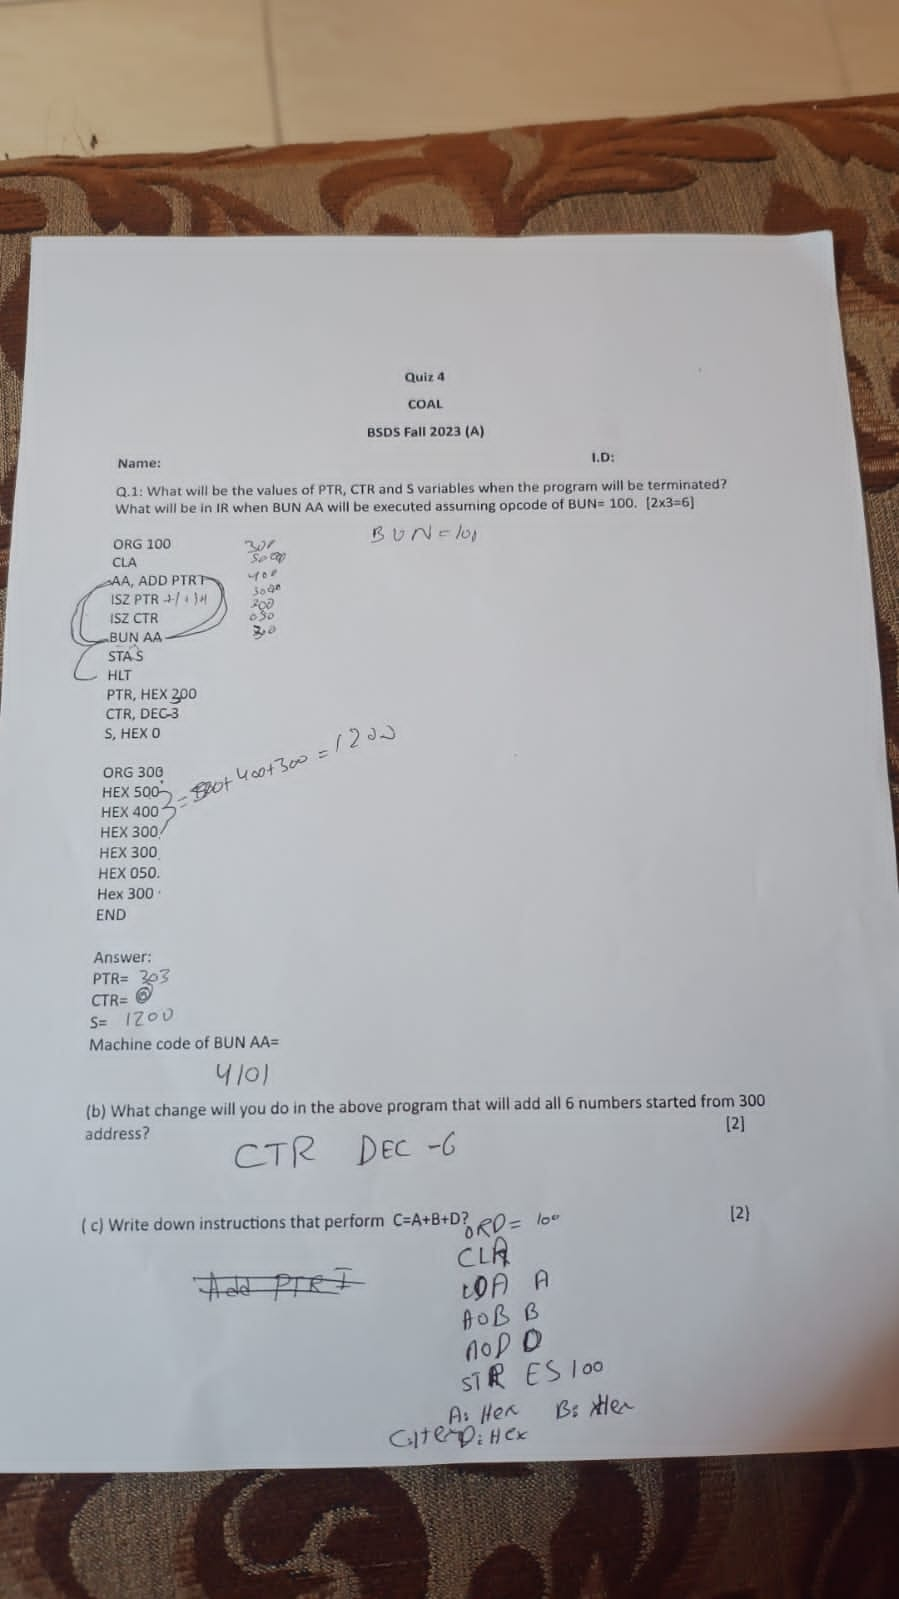 Quiz 4
COAL
BSDS Fall 2023 (A)
Name: I.D:
Q.1: What will be the values of PTR, CTR and S variables when the program will be terminated?
What will be in IR when BUN AA will be executed assuming opcode of BUN= 100. [2x3=6]
BUN = 101
ORG 100
CLA
AA, ADD PTR I
ISZ PTR
ISZ CTR
BUN AA
STA S
HLT
PTR, HEX 300
CTR, DEC-3
S, HEX 0
400
300
050
ORG 300
HEX 500
HEX 400 = 500+400+300 = 1200
HEX 300
HEX 300
HEX 050.
Hex 300
END
Answer:
PTR= 303
CTR= 0
S= 1200
Machine code of BUN AA=
4101
(b) What change will you do in the above program that will add all 6 numbers started from 300
address? [2]
CTR DEC -6
( c) Write down instructions that perform C=A+B+D? [2}
ORD= 100
CLA
Add PTR I
LDA A
ADB B
ADD D
STR ES 100
A: Hex B: Hex
D: Hex